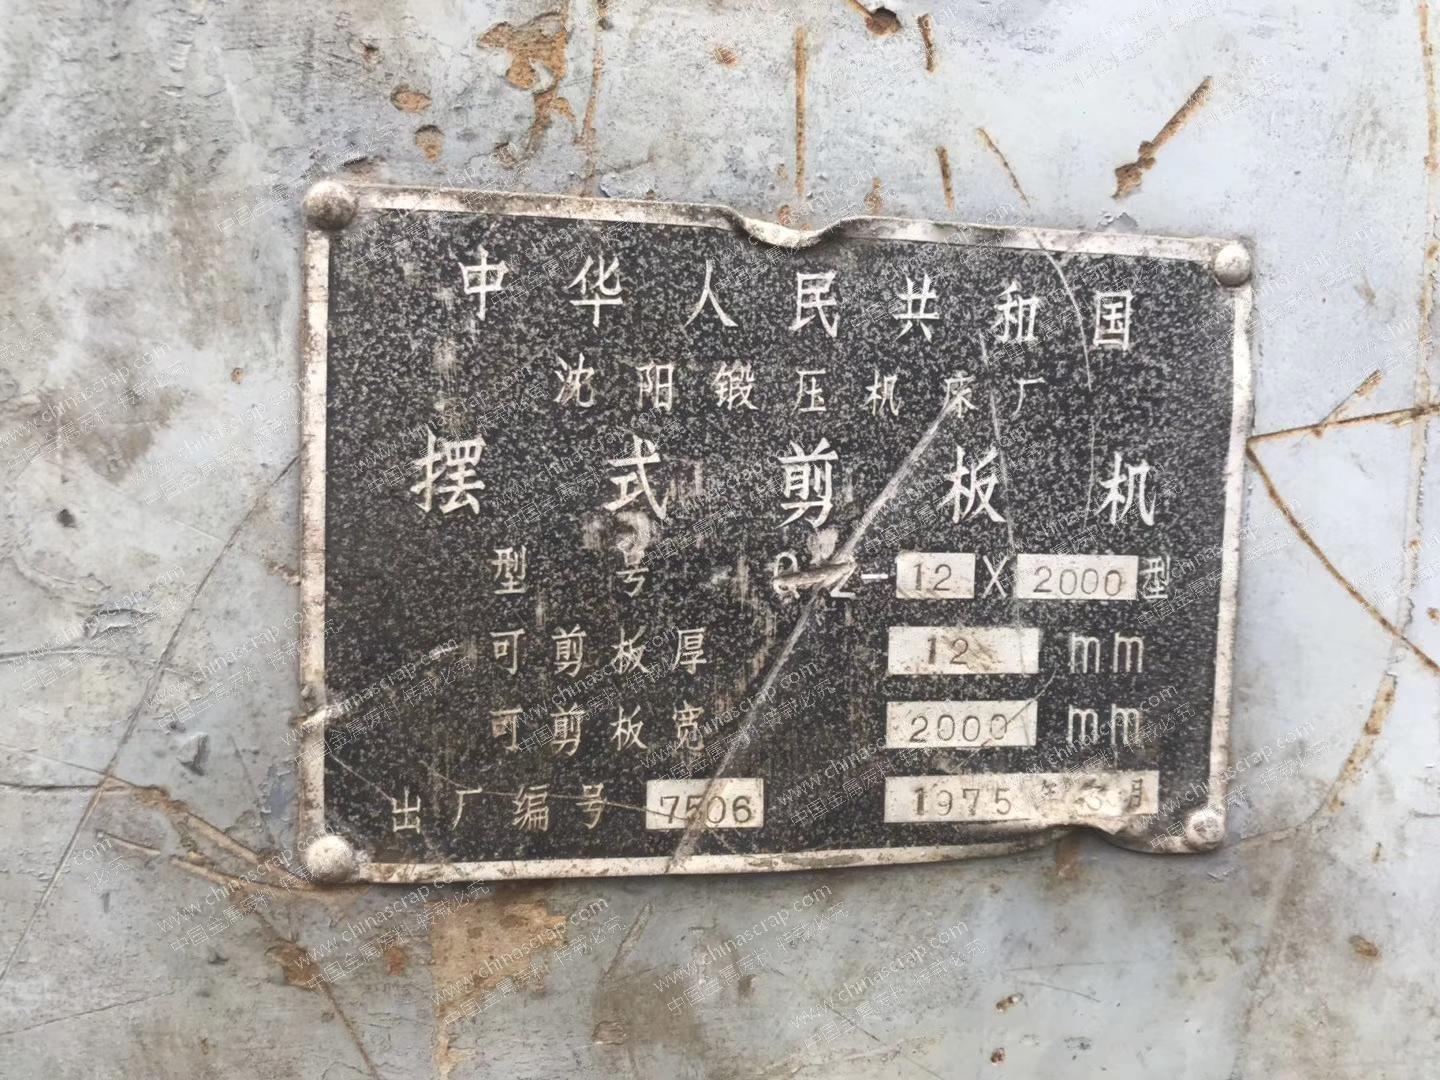 中华人民共和国
沈阳锻压机床厂
摆式剪板机
型号 -12X2000型
可剪板厚 12 mm
可剪板宽 2000 mm
出厂编号 7506 1975年3月
www.chinascrap.com
中国金属废料 转载必究